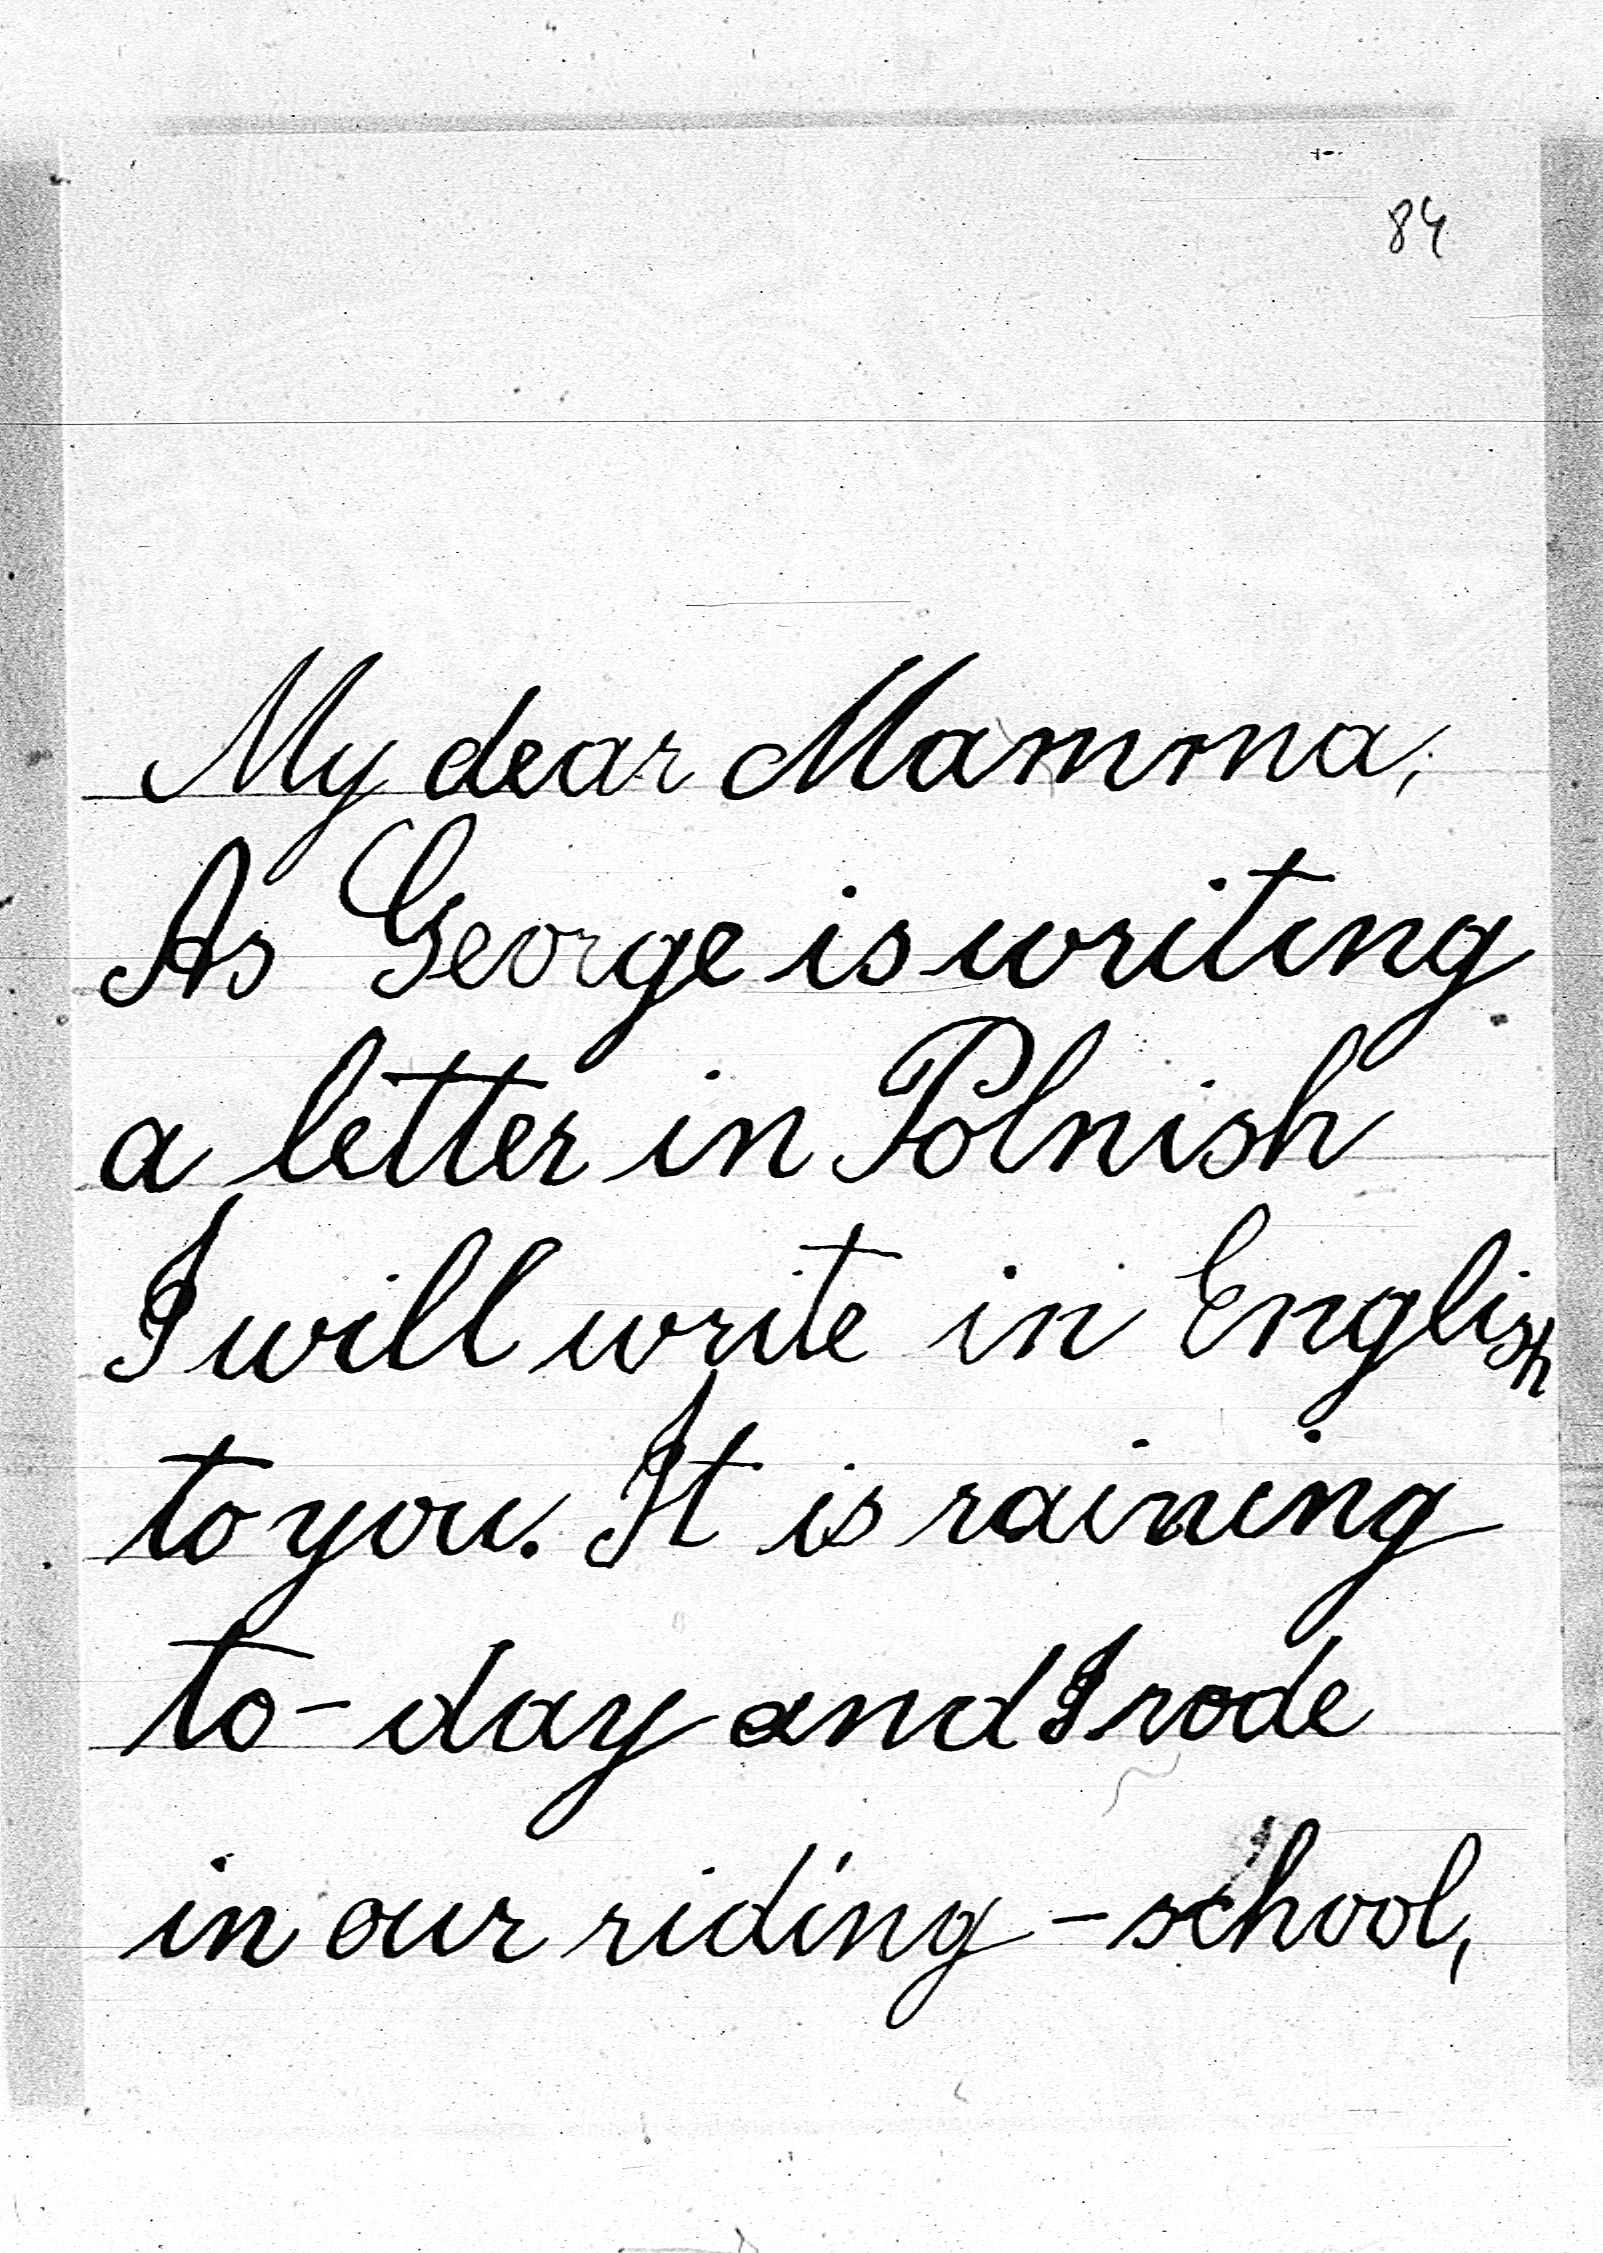 84
My dear Mamma,
As George is writing
a letter in Polnish
I will write in English
to you. It is raining
to-day and I rode
in our riding-school,